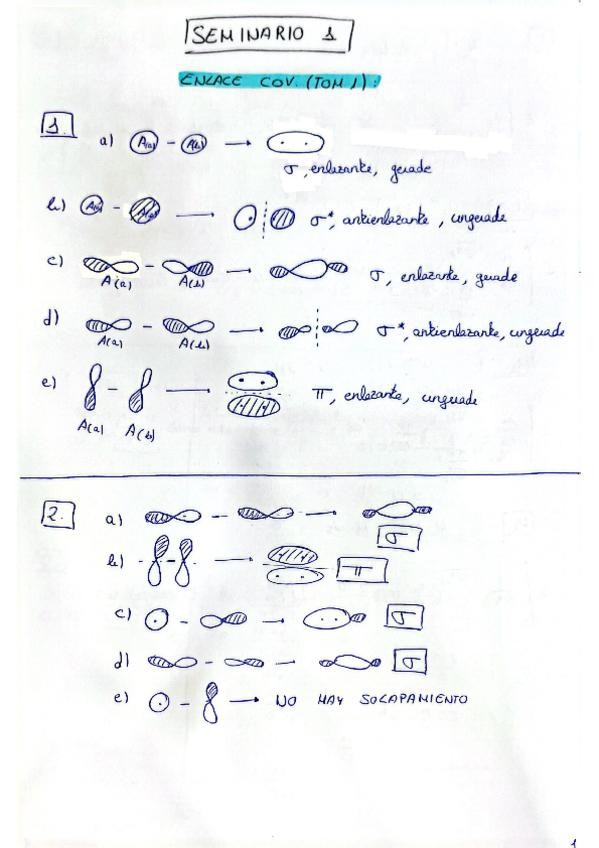 SEMINARIO 1
ENLACE COV. (TOM):
1.
a) A(a) - A(b) →
σ, enlazante, gerade
b) A(a) - A(b) →
σ*, antienlazante, ungerade
c) - →
A(a) A(b)
σ, enlazante, gerade
d) - →
A(a) A(b)
σ*, antienlazante, ungerade
e) - →
A(a) A(b)
π, enlazante, ungerade
2.
a) - →
σ
b) - - - → π
c) - → σ
d) - - σ
e) - → NO HAY SOLAPAMIENTO
1